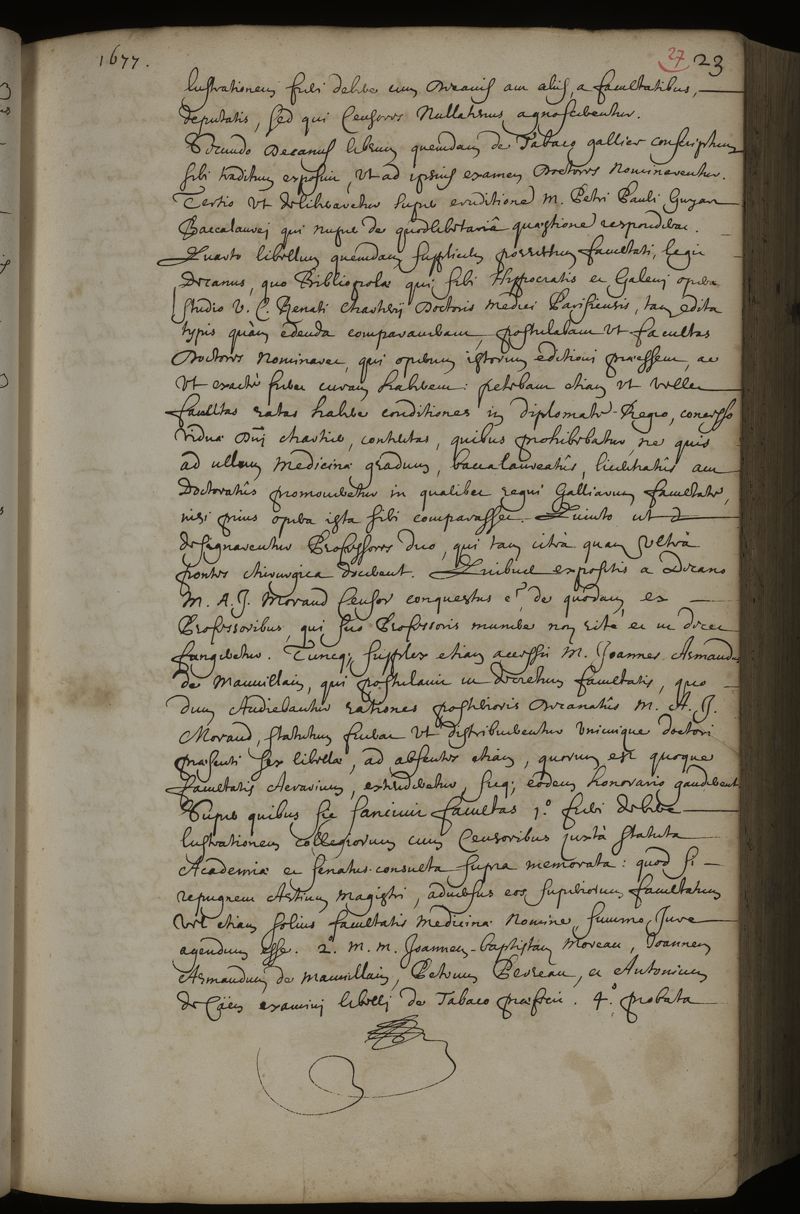 1677.
27 23
lustrationem fieri debere cum Decanis aut aliis, a facultatibus,
deputatis, sed qui Censores Nullatenus agnoscerentur.
Secundo Decanus librum quemdam de Tabaco gallicè conscriptum
sibi traditum exposuit, Ut ad ipsius examen Doctores Nominarentur.
Tertio Ut deliberaretur super eruditione M. Petri Pauli Guyart
Baccalaurej qui nuper de quodlibetariâ quæstione responderat.
Quarto libellum quemdam supplicem porrectum facultati, legit
Decanus, quo Bibliopolæ qui sibi Hippocratis et Galenj opera
studio V. C. Renati Charterij Doctoris Medici Parisiensis, tam edita
typis quam edenda compararant, postulabant Ut facultas
Doctores Nominaret, qui operum istorum editioni præessent, ac
Ut exactè fieret curam haberent: petebant etiam ut vellet
facultas ratas habere conditiones in diplomate Regio, concesso
viduæ Dni Chartier, contentas, quibus prohibebatur, ne quis
ad ullum Medicinæ gradum, baccalaureatûs, licentiatûs aut
Doctoratûs promoveretur in qualibet regni Galliarum facultate,
nisi prius opera ista sibi comparasset. Quinto ut
designarentur Professores duo, qui tam citrà quam Vltrà
pontes chirurgica docerent. Quibus expositis a Decano
M. A. J. Morand Censor conquestus e de quodam ex
Professoribus, qui suo Professoris munere non ritè et ut decet
fungeretur. Tuncq; supplex etiam accessit M. Joannes Armandus
de Mauvillain, qui postulavit ut decretum facultatis, quo
dum Audiebantur rationes posterioris Decanatûs M. A. J.
Morand, statutum fuerat Ut distribuerentur Vnicuique doctori
præsenti sex libellæ, ad absentes etiam, quorum est quoque
facultatis Aerarium, extenderetur, sicq; eodem honorario gauderent
Super quibus sic sancivit facultas 1.º fieri debere
lustrationem collegiorum cum Censoribus juxtà statuta
Academiæ et senatus-consulta supra memorata: quod si
repugnent Artium Magistri, adversus eos superiorum facultatum
vel etiam solius facultatis Medicinæ Nomine, summo, Jure
agendum esse. 2.º M. M. Joannem-baptistam Moreau, Joannem
Armandum de Mauvillain, Petrum Perreau, et Antonium
de Caën examini libelli de Tabaco præfecit. 4.º probata